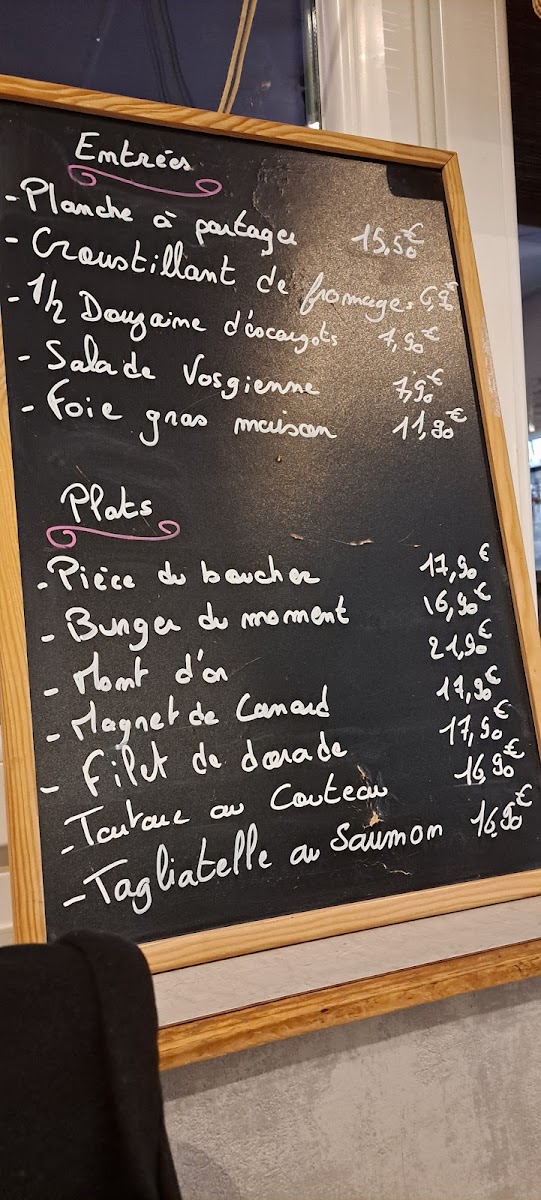 Entrées
- Planche à partager 15,50€
- Croustillant de fromage. 6,90€
- 1/2 Douzaine d'éscargots 7,90€
- Salade Vosgienne 7,90€
- Foie gras maison 11,90€
Plats
- Pièce du boucher 17,90€
- Burger du moment 16,90€
- Mont d'or 21,90€
- Magret de Canard 17,90€
- Filet de dorade 17,90€
- Tartare au Couteau 16,90€
- Tagliatelle au Saumon 16,90€